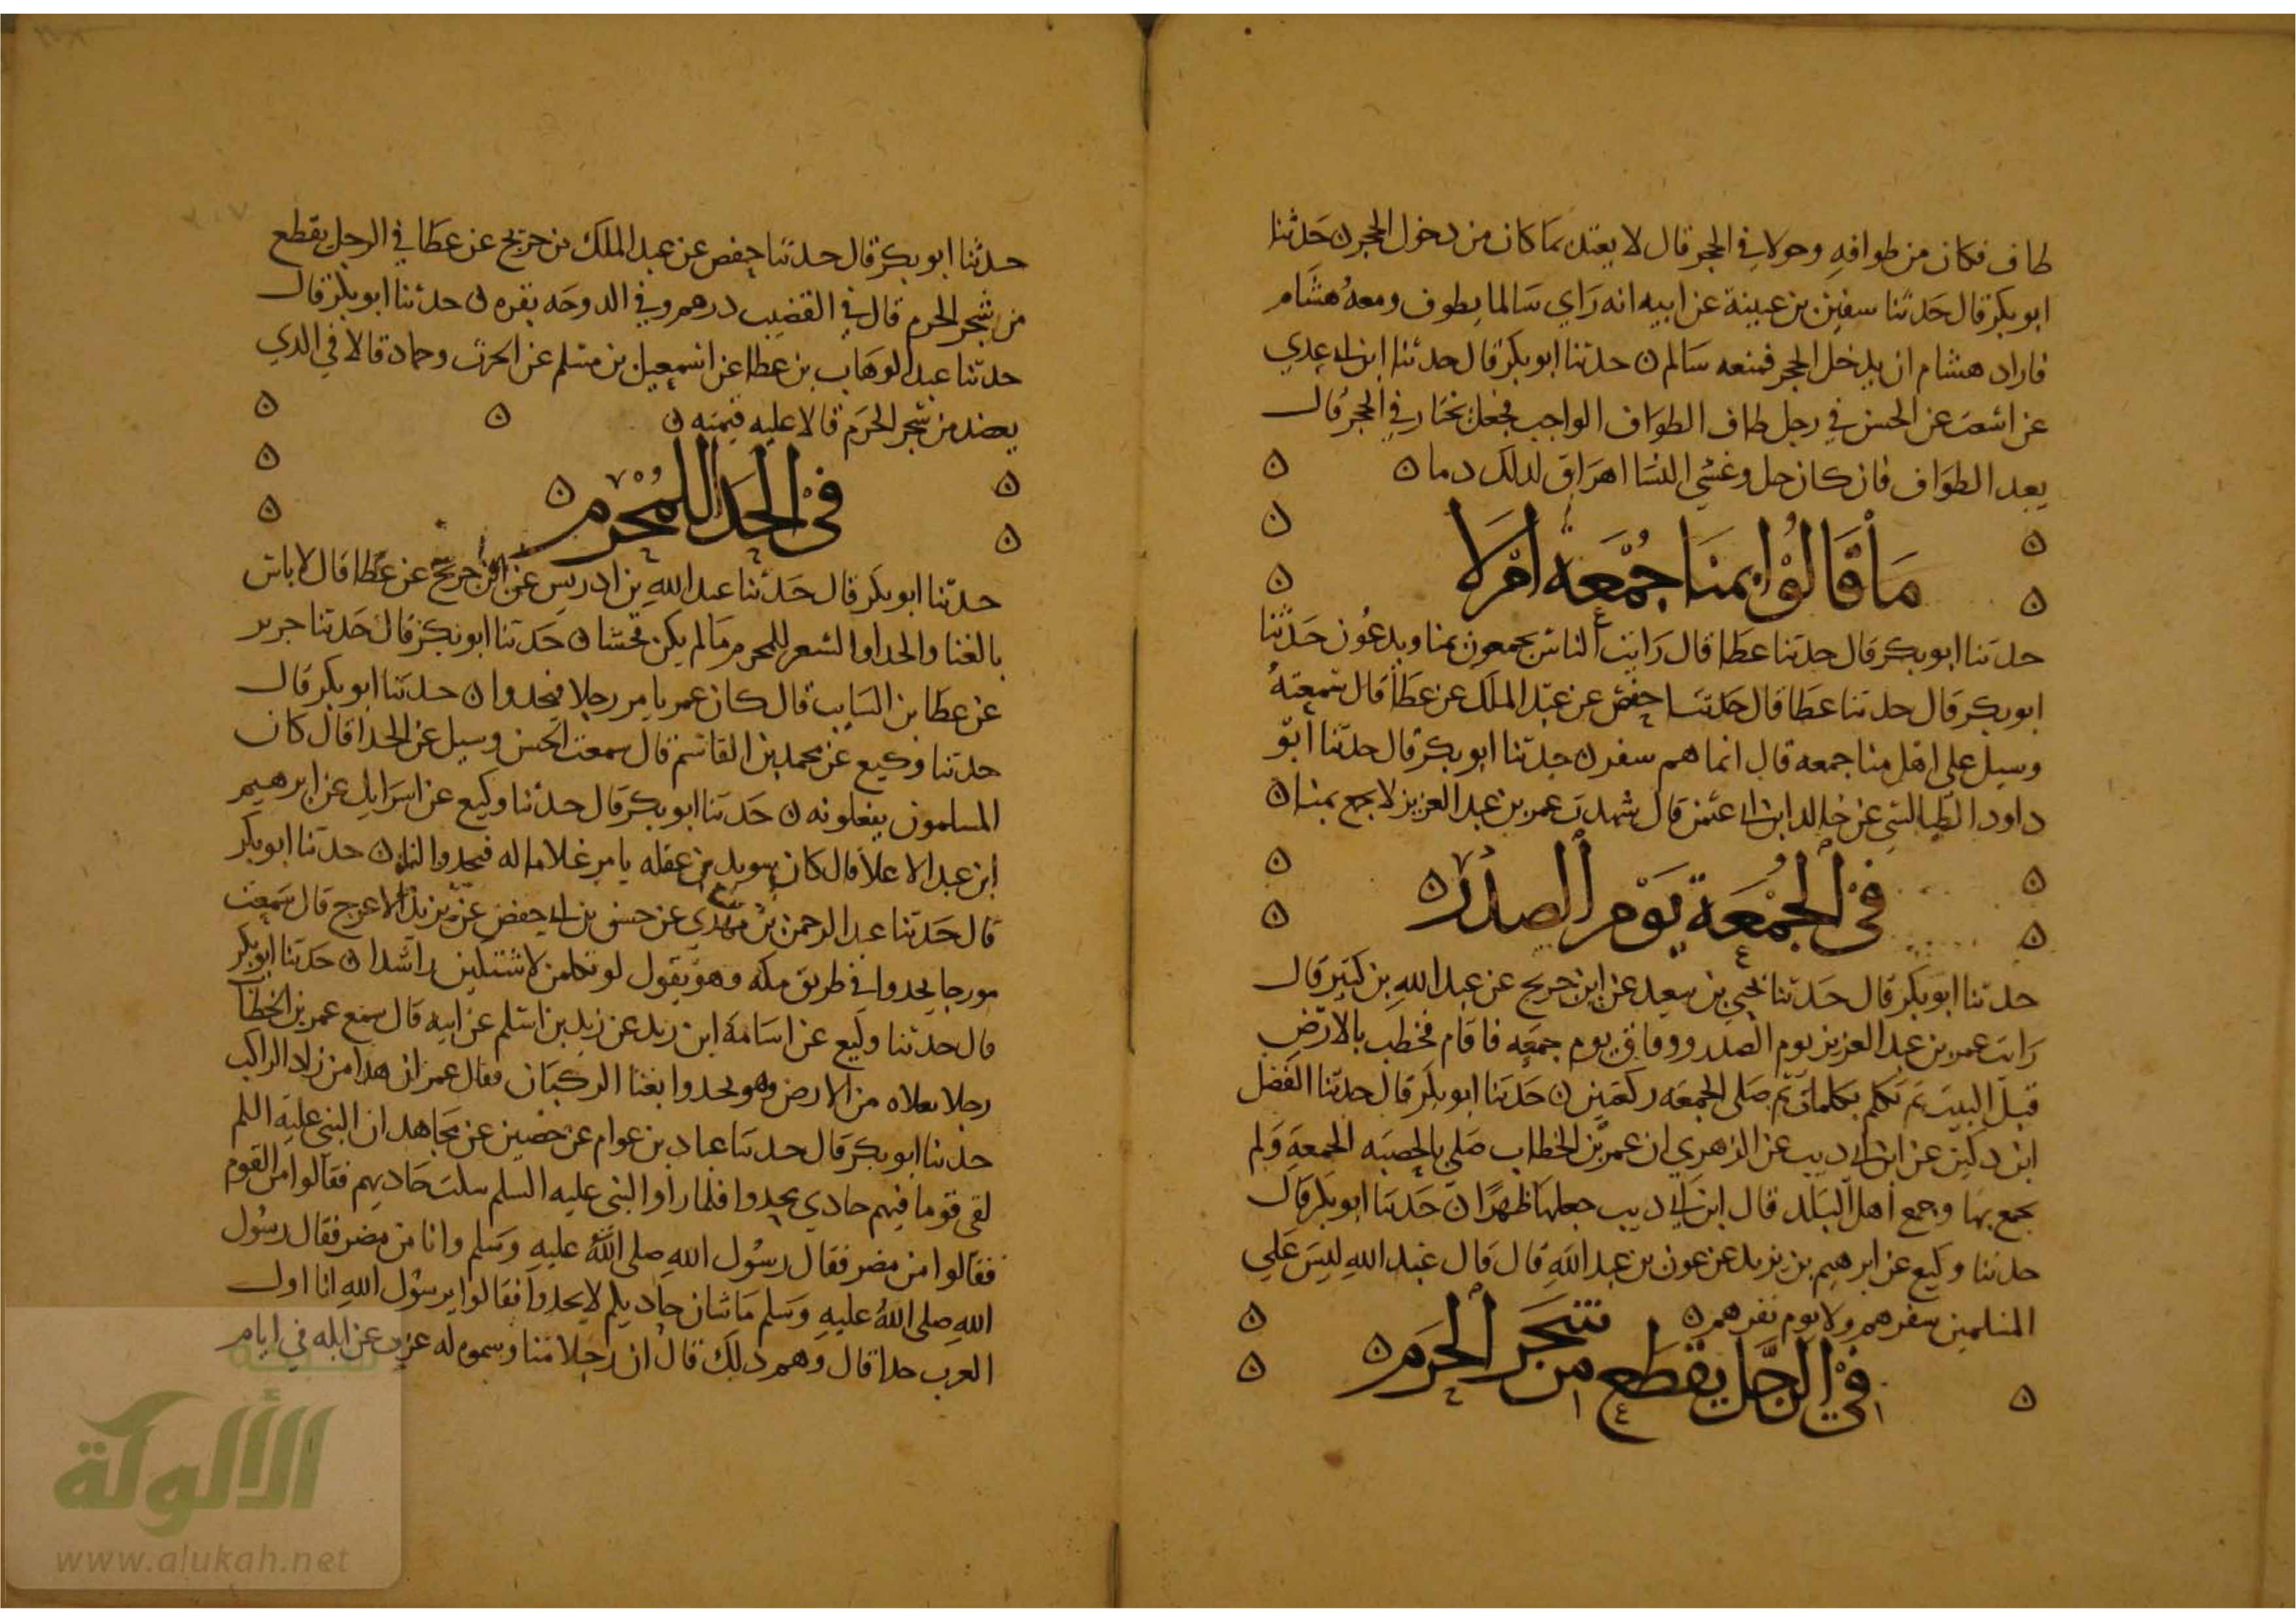 طاف فكان من طوافه وحولا في الحجر قال لا يعتد بما كان من دخول الحجر ه حدثنا
ابو بكر قال حدثنا سفين بن عيينة عن ابيه انه راي سالما يطوف ومعه هشام
فاراد هشام ان يدخل الحجر فمنعه سالم ه حدثنا ابو بكر قال حدثنا ابن ابي عدي
عن اشعث عن الحسن في رجل طاف الطواف الواجب فجعل في الحجر قال
يعيد الطواف فان كان حل وغشي النسا اهراق لذلك دما ه
ما قالوا بمنا جمعة ام لا
حدثنا ابو بكر قال حدثنا عطا قال رايت الناس يجمعون بمنا ويدعون حدثنا
ابو بكر قال حدثنا عطا قال حدثنا حفص عن عبد الملك عن عطا قال سمعته
وسيل علي اهل منا جمعه قال انما هم سفر ه حدثنا ابو بكر قال حدثنا ابو
داود الطيالسي عن خالد ابن ابي عثمن قال شهدت عمر بن عبد العزيز لا يجمع بمنا ه
في الجمعة يوم الصدر ه
حدثنا ابو بكر قال حدثنا يحيي بن سعيد عن ابن جريج عن عبد الله بن كثير قال
رايت عمر بن عبد العزيز يوم الصدر ووافق يوم جمعه فاقام فخطب بالارض
قبل البيت ثم تكلم بكلمات ثم صلى الجمعه ركعتين ه حدثنا ابو بكر قال حدثنا الفضل
ابن دكين عن ابن ابي ديب عن الزهري ان عمر بن الخطاب صلي بالحصبه الجمعة ولم
يجمع بها وجمع اهل البلد قال ابن ابي ديب جعلها ظهرا ه حدثنا ابو بكر قال
حدثنا وكيع عن ابرهيم بن يزيد عن عون بن عبد الله قال قال عبد الله ليس علي
المسلمين سفرهم ولا يوم نفرهم ه
في الرجل يقطع من شجر الحرم ه
حدثنا ابو بكر قال حدثنا حفص عن عبد الملك بن جريج عن عطا في الرجل يقطع
من شجر الحرم قال في القضيب درهم وفي الدوحه بقره ه حدثنا ابو بكر قال
حدثنا عبد الوهاب بن عطا عن اسمعيل بن مسلم عن الحرث وحماد قالا في الذي
يعضد من شجر الحرم قالا عليه قيمته ه
في الحدا للمحرم ه
حدثنا ابو بكر قال حدثنا عبد الله بن ادريس عن ابن جريج عن عطا قال لا باس
بالغنا والحدا والشعر للمحرم ما لم يكن فحشا ه حدثنا ابو بكر قال حدثنا جرير
عن عطا بن السايب قال كان عمر يامر رجلا فيحدوا ه حدثنا ابو بكر قال
حدثنا وكيع عن محمد بن القاسم قال سمعت الحسن وسيل عن الحدا قال كان
المسلمون يفعلونه ه حدثنا ابو بكر قال حدثنا وكيع عن اسرايل عن ابرهيم
ابن عبد الاعلا قال كان سويد بن غفله يامر غلاما له فيحدوا لنا ه حدثنا ابو بكر
قال حدثنا عبد الرحمن بن مهدي عن حسن بن ابي جعفر عن يزيد الاعرج قال سمعت
مورجا يحدوا في طريق مكه وهو يقول لو تكلمن لاشتكين راشدا ه حدثنا ابو بكر
قال حدثنا وكيع عن اسامة ابن زيد عن زيد بن اسلم عن ابيه قال سمع عمر بن الخطاب
رجلا بفلاه من الارض وهو يحدوا بغنا الركبان فقال عمر ان هذا من زاد الراكب
حدثنا ابو بكر قال حدثنا عباد بن عوام عن حصين عن مجاهد ان النبي عليه السلم
لقي قوما فيهم حادي يحدوا فلما راوا النبي عليه السلم سكت حاديهم فقال من القوم
فقالوا من مضر فقال رسول الله صلى الله عليه وسلم وانا من مضر فقال رسول
الله صلى الله عليه وسلم ما شان حاديكم لا يحدوا فقالوا يرسول الله انا اول
العرب حدا قال ومم ذلك قال ان رجلا منا وسموه له عزب عن ابله في ايام
شبكة
الألوكة
www.alukah.net